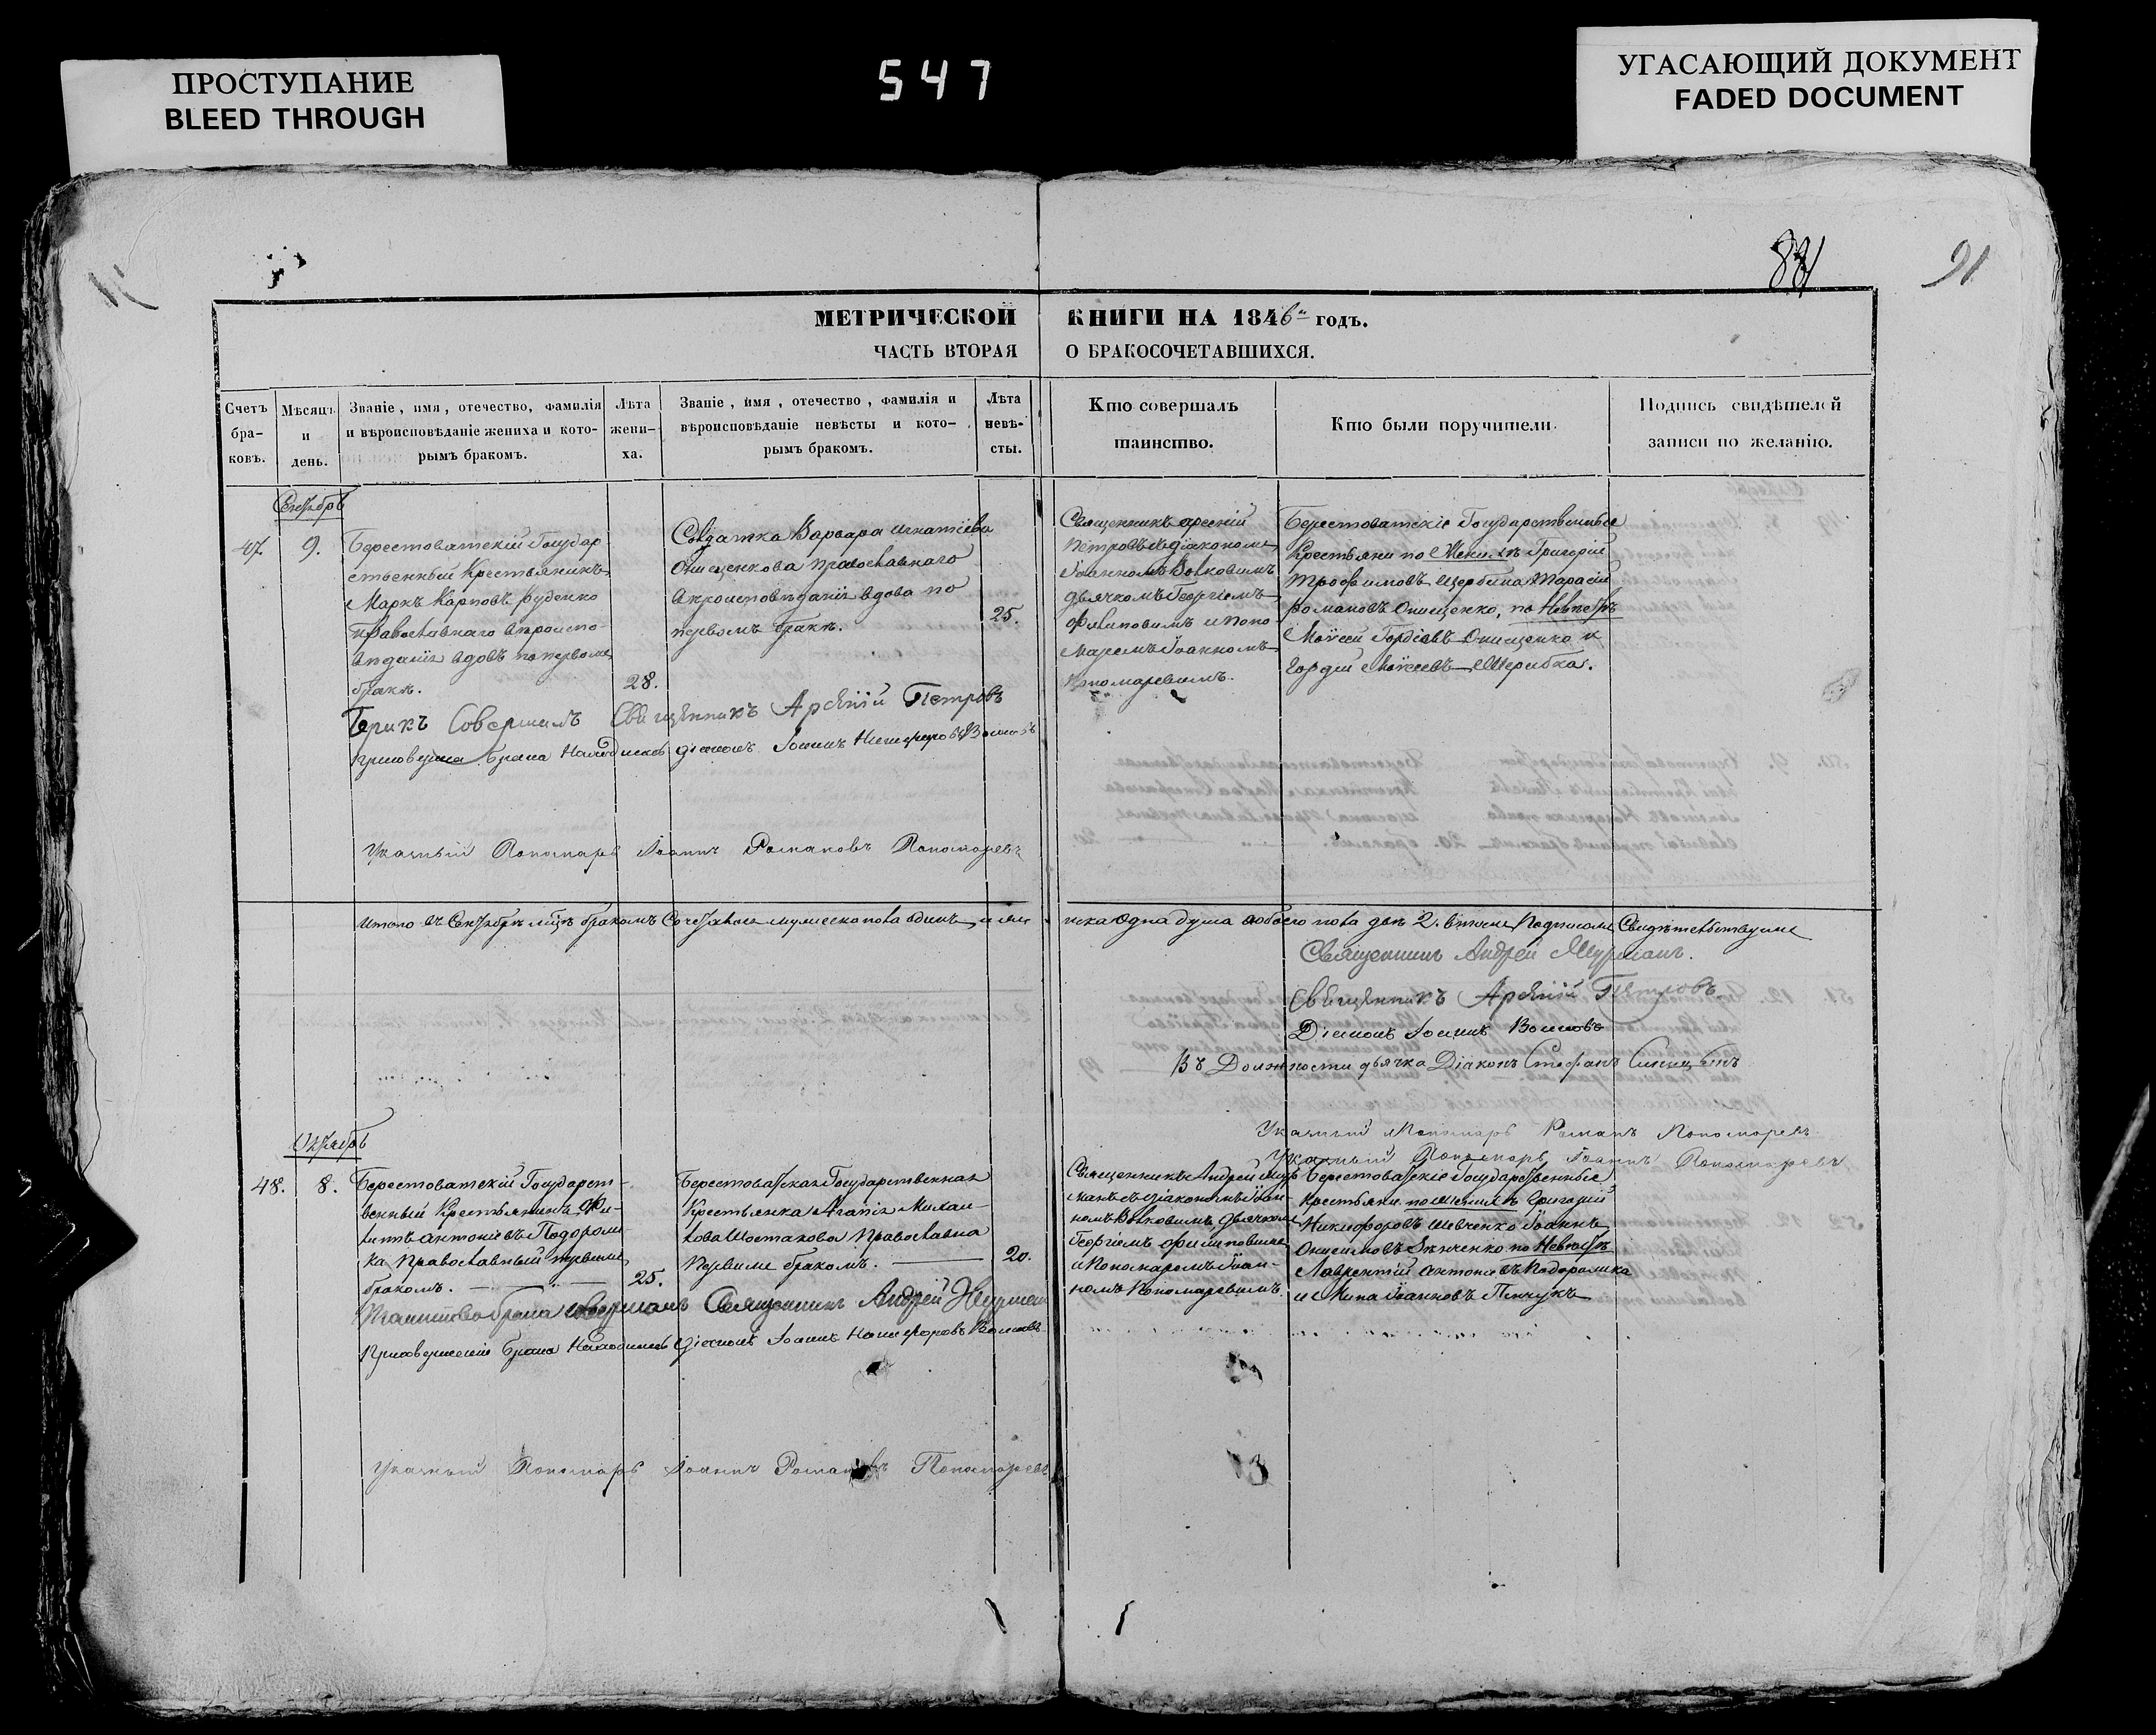 ПРОСТУПАНИЕ
BLEED THROUGH
547
УГАСАЮЩИЙ ДОКУМЕНТ
FADED DOCUMENT
91
МЕТРИЧЕСКОЙ КНИГИ НА 1846 годъ.
ЧАСТЬ ВТОРАЯ О БРАКОСОЧЕТАВШИХСЯ.
Счетъ бра-ковъ.
Мѣсяцъ и день.
Званіе, имя, отечество, фамилія
и вѣроисповѣданіе жениха и кото-
рымъ бракомъ.
Лѣта жени-ха.
Званіе, имя, отечество, фамилія и
вѣроисповѣданіе невѣсты и кото-
рымъ бракомъ.
Лѣта невѣ-сты.
Кто совершалъ
таинство.
Кто были поручители.
Подпись свидѣтелей
записи по желанію.
Сентябрь
47. 9.
Берестоватскій Государ
ственный Крестьянинъ
Маркъ Карповъ Руденко
православнаго вѣроиспо
вѣданія вдовъ по первомъ
бракѣ.
28.
Солдатка Варвара Игнатіева
Онищенкова православнаго
вѣроисповѣданія вдова по
первомъ бракѣ.
25.
Священникъ Арсеній
Петровъ съ діакономъ
Іоанномъ Волковымъ
дьячкомъ Георгіемъ
Филиповымъ и поно
маремъ Іоанномъ
Пономаревымъ.
Берестоватскіе Государственные
Крестьяни по Женихѣ Григорій
Трофимовъ Щербина Тарасій
Романовъ Онищенко, по Невѣстѣ
Моѵсей Гордіевъ Онищенко и
Гордій Моѵсеевъ
Бракъ Совершилъ Священникъ Арсеній Петровъ
При совершеніи брака Находился діаконъ Іоаннъ Никифоровъ Волковъ
Указный Пономарь Іоаннъ Романовъ Пономаревъ
Итого въ Сентябрѣ мцѣ бракомъ Сочетались мужеска пола одинъ, и жен
ска одна душа обоего пола двѣ 2. въ томъ Подписомъ Свидѣтельствуемъ
Священникъ Андрей Шурманъ.
Священникъ Арсеній Петровъ.
Діаконъ Іоаннъ Волковъ
Въ Должности дьячка Діаконъ Стефанъ
Указный Пономарь Романъ Пономаревъ
Указный Пономарь Іоаннъ Пономаревъ
Октябрь
48. 8.
Берестоватскій Государст-
венный Крестьянинъ Фи-
липъ Антоніевъ Подороли-
ка Православный первымъ
бракомъ.
25.
Берестоватская Государственная
Крестьянка Агапія Михаи-
лова Шостакова Православна
Первымъ бракомъ.
20.
Священникъ Андрей Шур
манъ съ діакономъ Іоан-
номъ Волковымъ, дьячкомъ
Георгіемъ Филиповымъ
и Пономаремъ Іоан-
номъ Пономаревымъ.
Берестоватскіе Государственные
Крестьяни по Женихѣ Григорій
Никифоровъ Шевченко Іоаннъ
Онисимовъ Зинченко по Невѣстѣ
Лаврентій Антоніевъ Подоролика
и Мина Іоанновъ Пинчукъ
Таинство брака совершалъ Священникъ Андрей Шурман
При совершеніи брака Находился діаконъ Іоаннъ Никифоровъ Волковъ
Указный Пономарь Іоаннъ Романовъ Пономаревъ